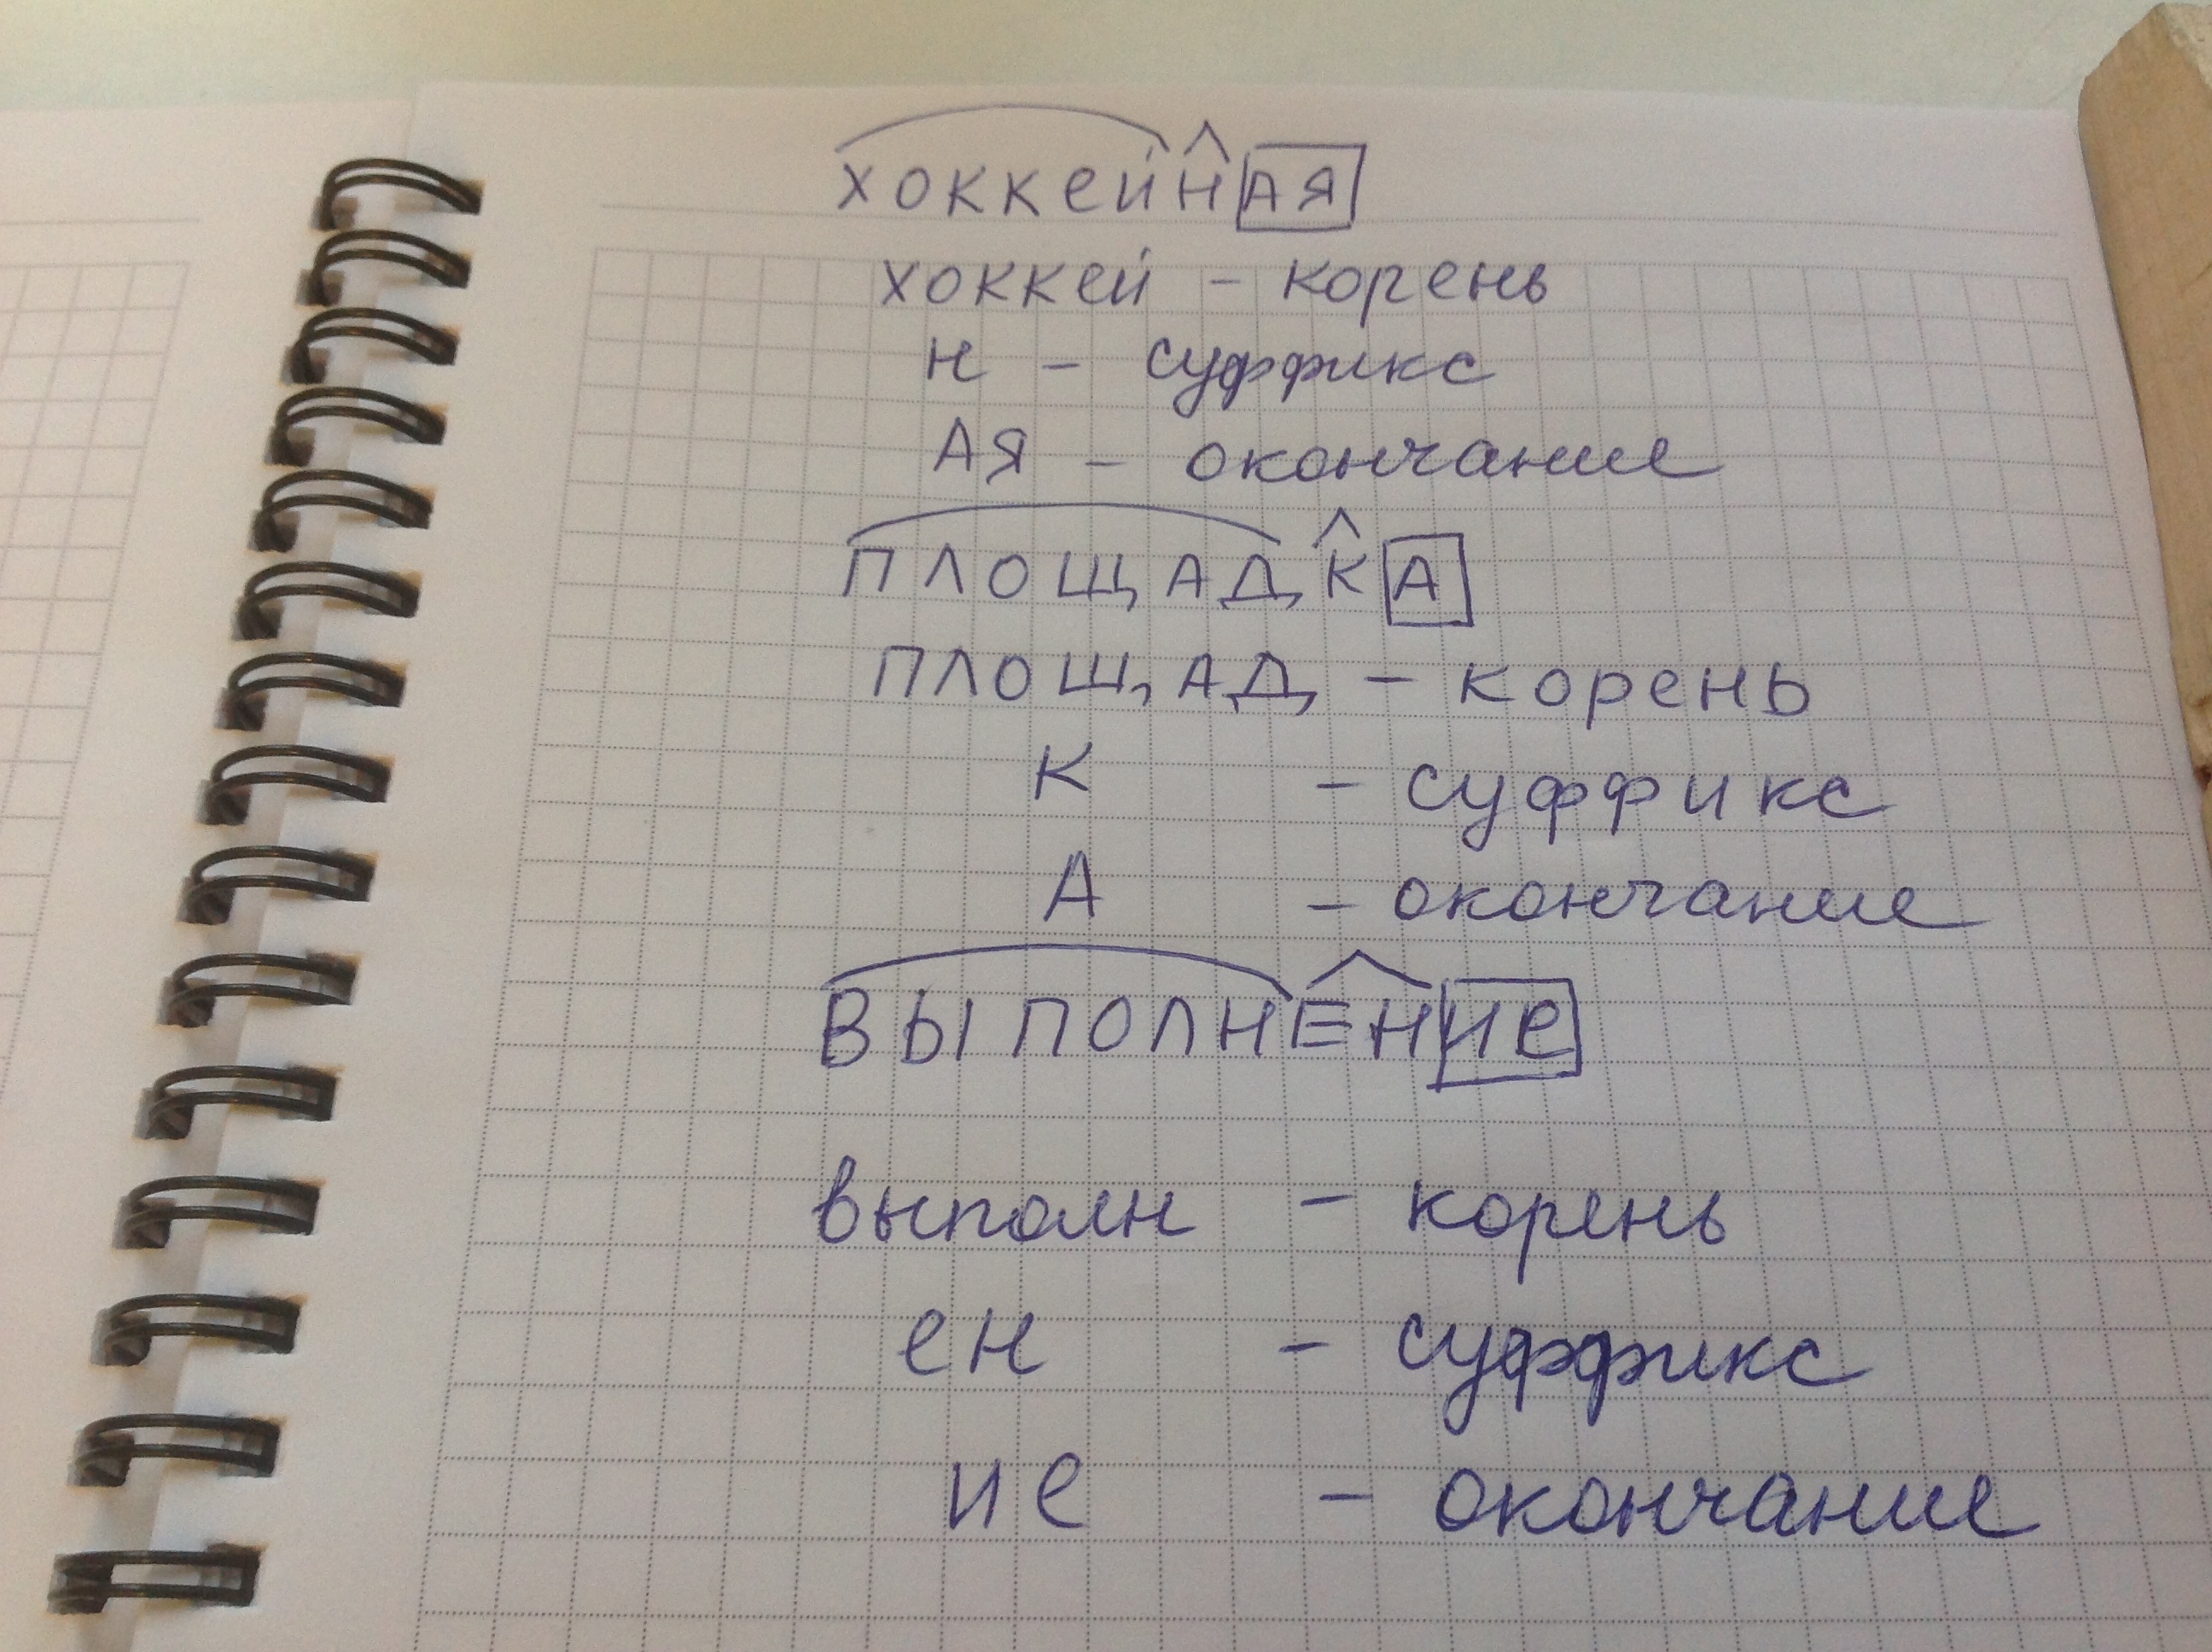 хоккейнАЯ
хоккей - корень
н - суффикс
АЯ - окончание
ПЛОЩАДКА
ПЛОЩАД - корень
К - суффикс
А - окончание
ВЫПОЛНЕНие
выполн - корень
ен - суффикс
ие - окончание